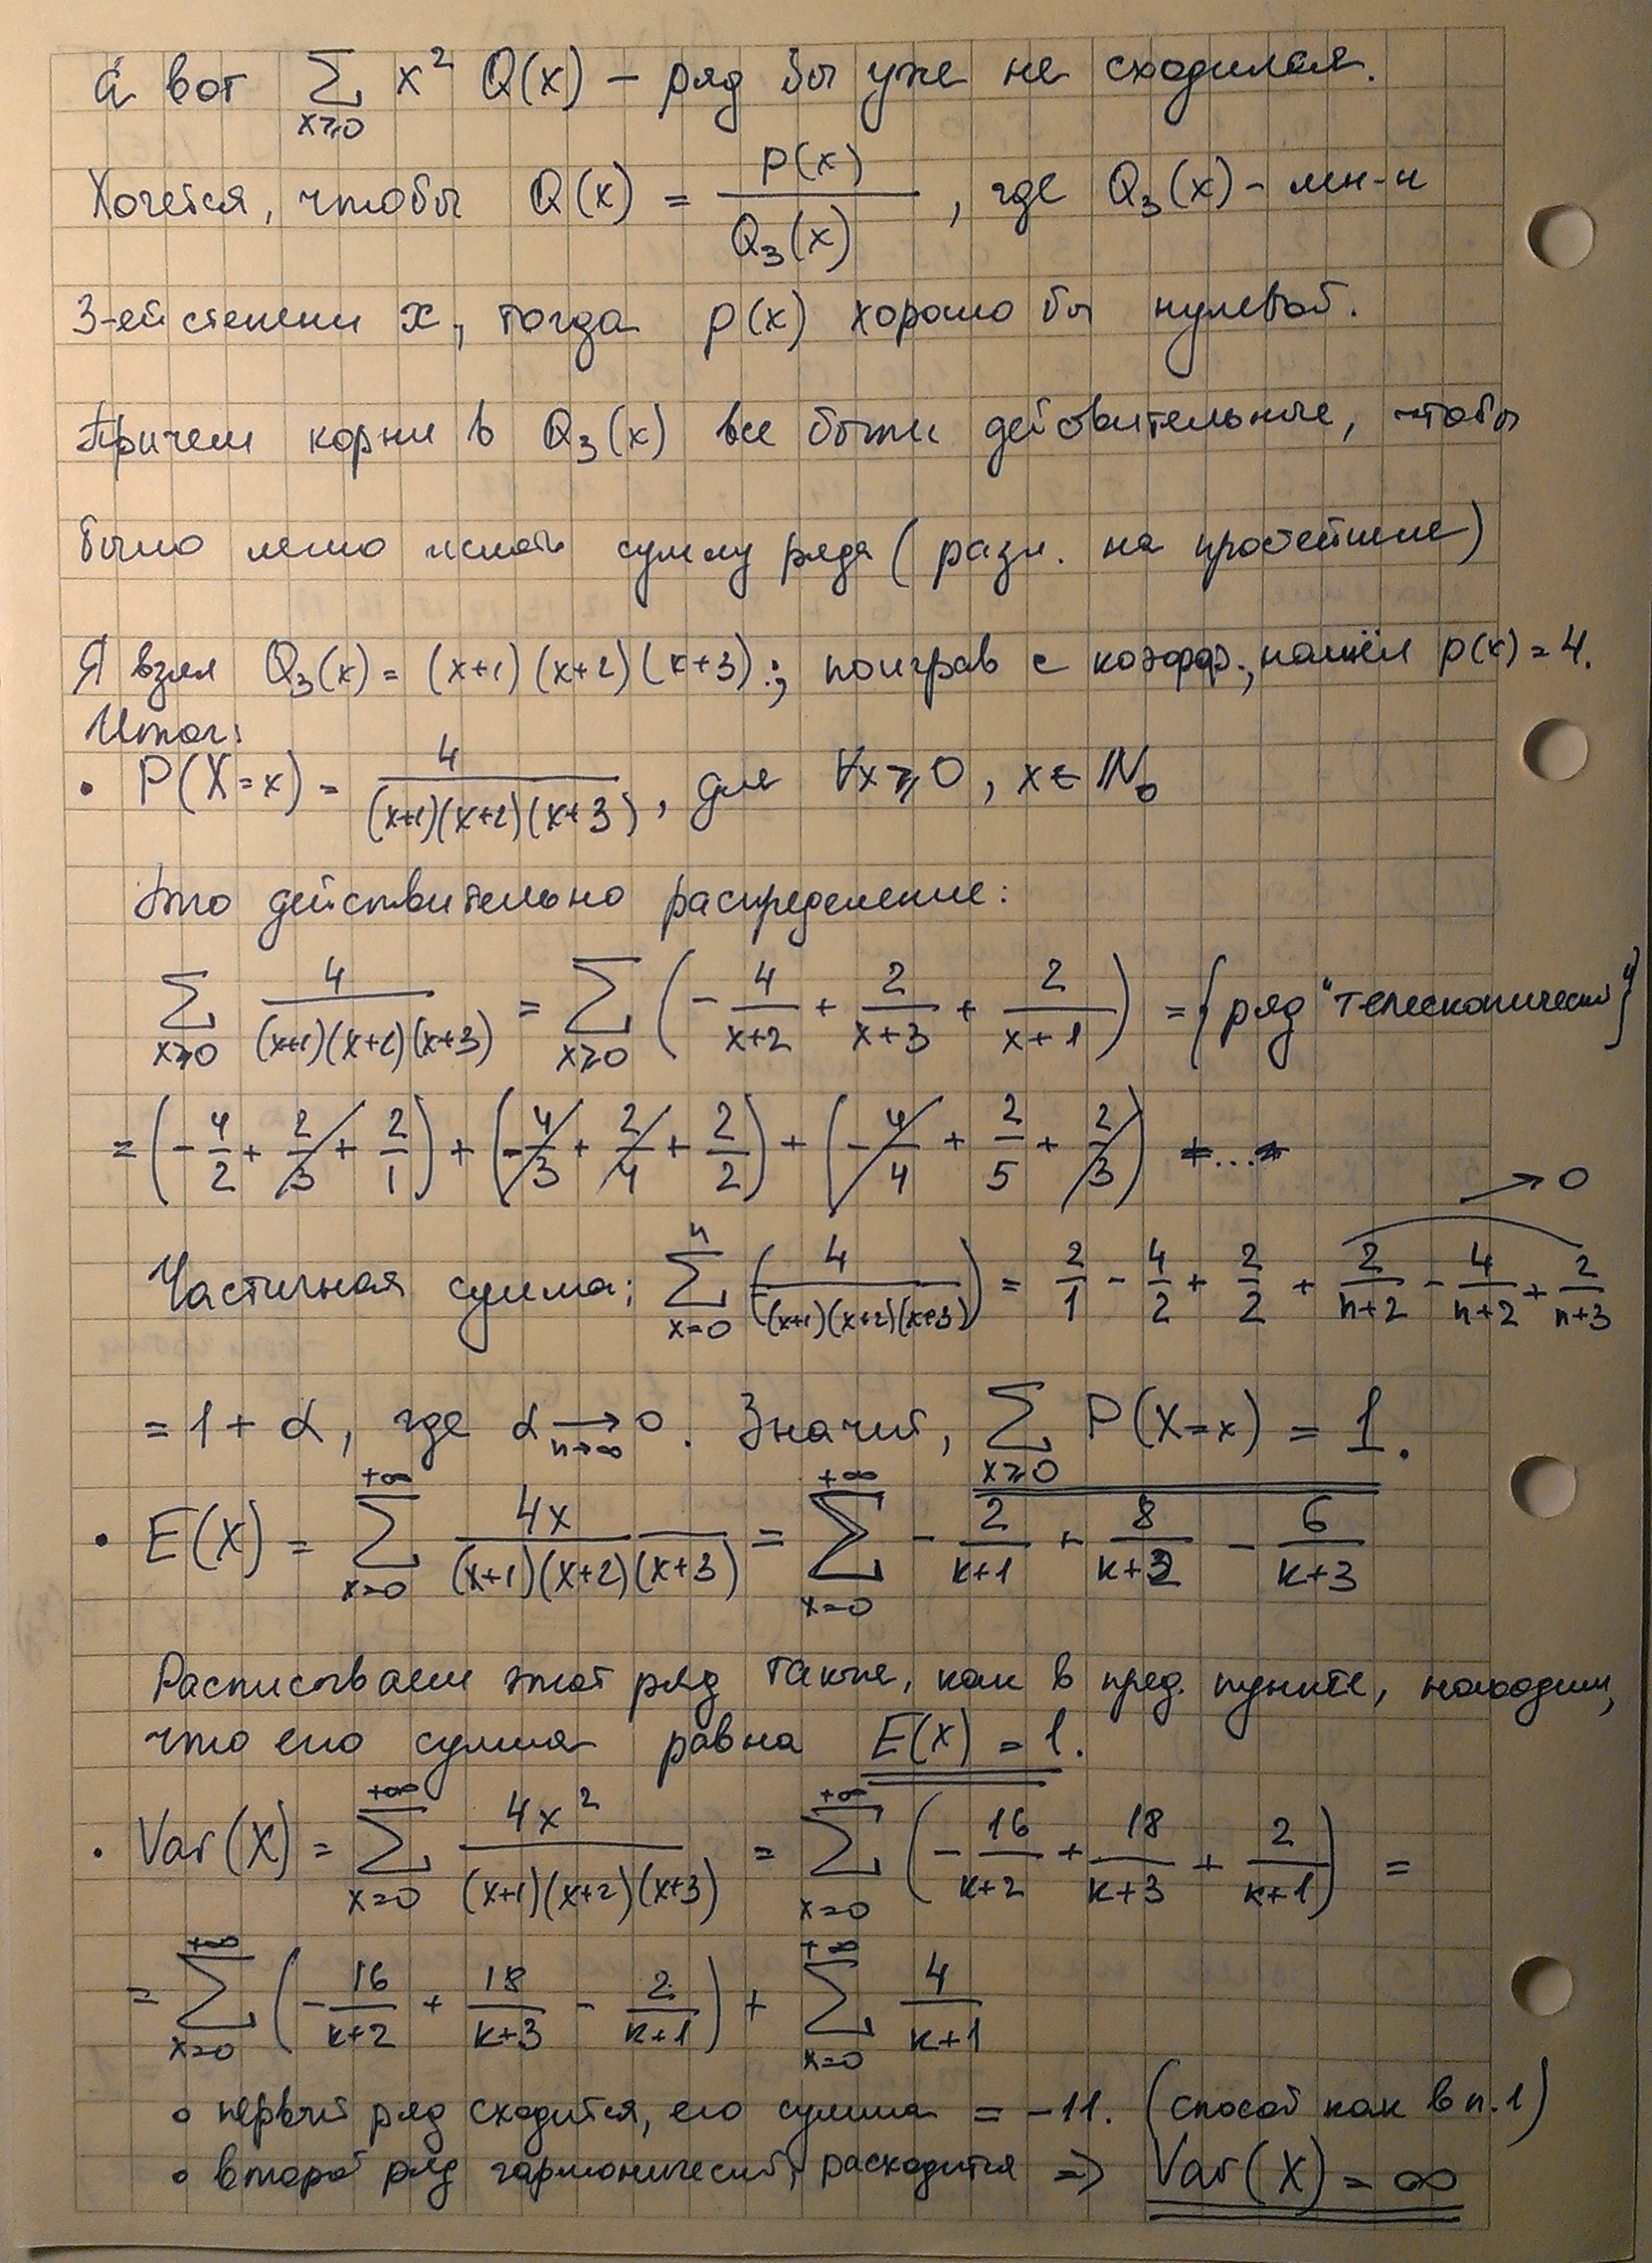 А вот ∑_{x≥0} x² Q(x) – ряд бы уже не сходился.
Хочется, чтобы Q(x) = P(x)/Q₃(x), где Q₃(x) – мн-н
3-ей степени x, тогда p(x) хорошо бы нулевой.
Причем корни в Q₃(x) все были действительные, чтобы
было легко искать сумму ряда (разл. на простейшие)
Я взял Q₃(x) = (x+1)(x+2)(x+3).; поиграв с коэфф., нашёл p(x) = 4.
Итог:
• P(X=x) = 4/((x+1)(x+2)(x+3)), для ∀x≥0, x∈ℕ₀
Это действительно распределение:
∑_{x≥0} 4/((x+1)(x+2)(x+3)) = ∑_{x≥0} (-4/(x+2) + 2/(x+3) + 2/(x+1)) = {ряд "телескопический"}
= (-4/2 + 2/3 + 2/1) + (-4/3 + 2/4 + 2/2) + (-4/4 + 2/5 + 2/3) + ... +
→ 0
Частичная сумма: ∑_{x=0}^{n} (4/((x+1)(x+2)(x+3))) = 2/1 - 4/2 + 2/2 + 2/(n+2) - 4/(n+2) + 2/(n+3)
= 1 + α, где α →_{n→∞} 0. Значит, ∑_{x≥0} P(X=x) = 1.
• E(X) = ∑_{x=0}^{+∞} 4x/((x+1)(x+2)(x+3)) = ∑_{x=0}^{+∞} -2/(k+1) + 8/(k+2) - 6/(k+3)
Расписываем этот ряд также, как в пред. пункте, находим,
что его сумма равна E(X) = 1.
• Var(X) = ∑_{x=0}^{+∞} 4x²/((x+1)(x+2)(x+3)) = ∑_{x=0}^{+∞} (-16/(k+2) + 18/(k+3) + 2/(k+1)) =
= ∑_{x=0}^{+∞} (-16/(k+2) + 18/(k+3) - 2/(k+1)) + ∑_{x=0}^{+∞} 4/(k+1)
∘ первый ряд сходится, его сумма = -11. (способ как в п.1)
∘ второй ряд гармонический, расходится => Var(X) = ∞